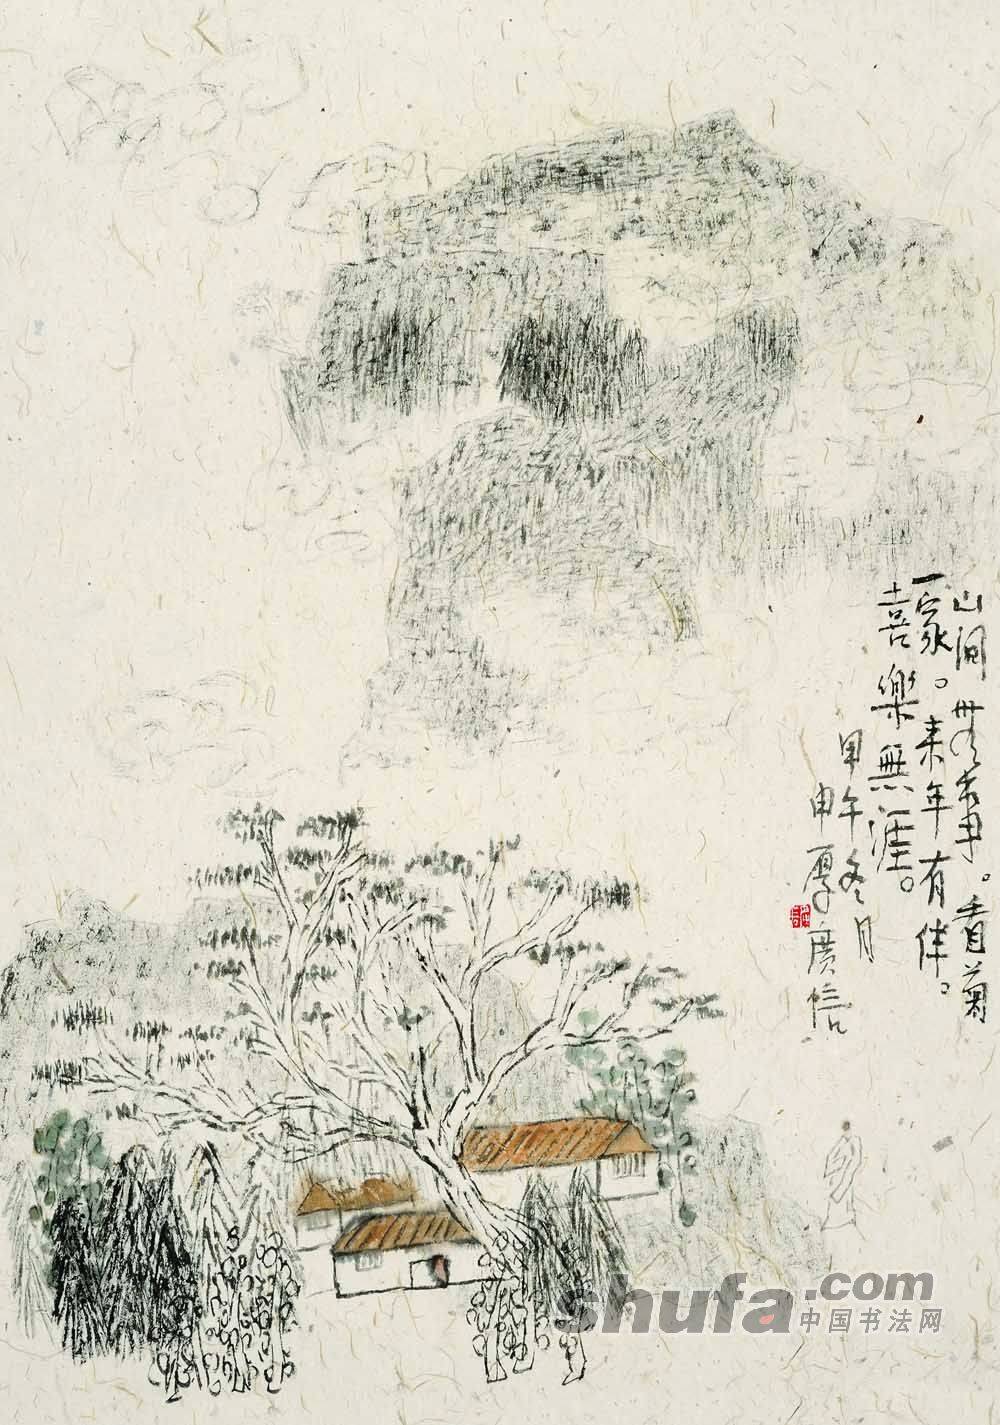 山间事。看菊
一家。来年有伴。
喜樂無涯。
甲午冬月
申厚廣信
shufa.com
中国书法网